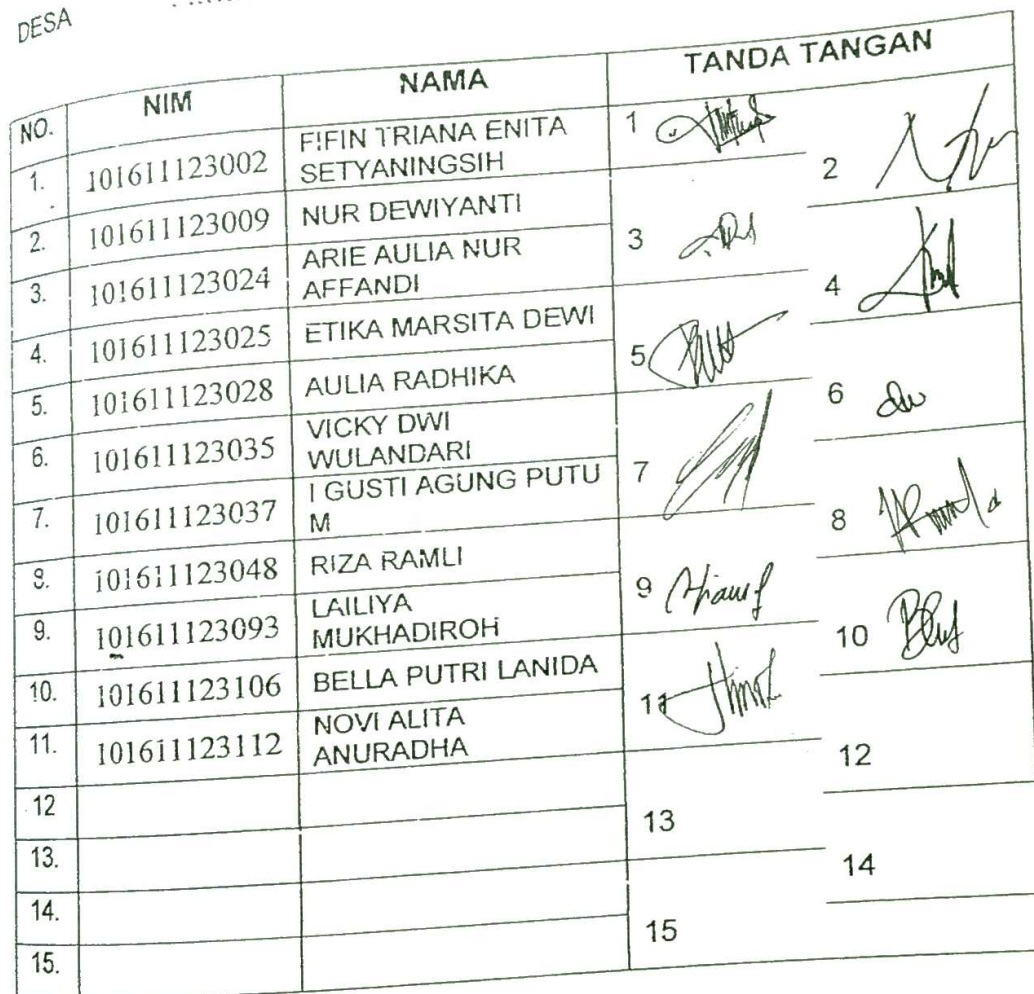 DESA
NO. NIM NAMA TANDA TANGAN
1. 101611123002 FIFIN TRIANA ENITA
SETYANINGSIH
1
2. 101611123009 NUR DEWIYANTI
2
3. 101611123024 ARIE AULIA NUR
AFFANDI
3
4. 101611123025 ETIKA MARSITA DEWI
4
5. 101611123028 AULIA RADHIKA
5
6. 101611123035 VICKY DWI
WULANDARI
6
7. 101611123037 I GUSTI AGUNG PUTU
M
7
8. 101611123048 RIZA RAMLI
8
9. 101611123093 LAILIYA
MUKHADIROH
9
10. 101611123106 BELLA PUTRI LANIDA
10
11. 101611123112 NOVI ALITA
ANURADHA
11
12
12
13.
13
14.
14
15.
15